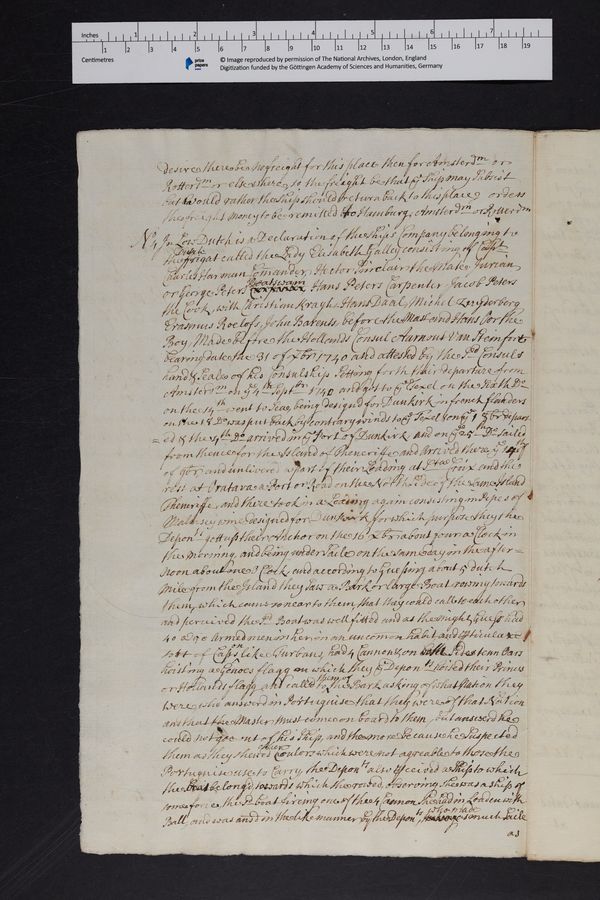 Inches 1 2 3 4 5 6 7
1 2 3 4 5 6 7 8 9 10 11 12 13 14 15 16 17 18 19
Centimetres
prize papers
© Image reproduced by permission of The National Archives, London, England
Digitization funded by the Göttingen Academy of Sciences and Humanities, Germany
desires there be no freight for this place then for Amsterdm or
Rotterdm or elsewhere, so the freight be that ye Ship may subsist
but would rather the Ship should return back to this place, orders
the freight money to be remitted to Hamburg, Amsterdm or Rotterdm
No 4 In Low Dutch is a Declaration of the Ships Company belonging to
the frigat called the Lady Elisabeth Galley consisting of Capt
Charles Harman Comander, Hector Sinclair the Mate, Jurian
or George Peters Boatswain Hans Peters Carpenter Jacob Peters
the Cook, with Christian Kragh, Hans Daal, Michel Snyderberg
Erasmus Roelofs, John Barents, before the Mast and Hans the
Boy, Made before the Hollands Consul Aurnout Van Steinfort
bearing date the 31 of Xbr 1740 and attested by the sd Consuls
hand & Seale of his Consulship. Setting forth their departure from
Amsterdm on ye 4th Septbr 1740 and got to ye Texel on the
on the 14th went to Sea, being designed for Dunkirk in french flanders
on the 18 Do was put back by contrary winds to ye Texel
ed & the 4th Do arrived in ye Port of Dunkirk and on ye 25th Do sailed
from thence for the Island of Theneriffe and Arrived there ye
of 9br and unlivered a part of their Loading at Sta Croix and the
rest at Oratava a Port or Road on the North side of the same Island
Theneriffe, and there took in a Loading again consisting in Pipes of
Malmsey wine designed for Dunkirk for which purpose they the
Deponts got up their Anchor on the 16 Xbr about four a Clock in
the morning, and being under Saile on the same day in the after=
noon about one a Clock and according to Guessing about 5 dutch
mile from the Island they saw a Bark or large Boat rowing towards
them, which came so near to them that they could call to each other
and perceived the sd Boat was well fitted and as the might Guess had
40 a 50 armed men in her in an uncomon habit and perticulare
sort of Caps like Turbans, had 4 Cannons, on both Sides tenn Oars
hoisting a Genoes flagg on which they ye Deponts hoisted their Princes
or Hollands flagg and called to them in the Bark asking of what Nation they
were, who answerd in Portuguise that they were of that Nation
and that the Master must come on board to them, but answerd he
could not goe out of his Ship, and the more because he suspected
them as they shewed Coulors which were not agreable to those the
Portuguise use to Carry, the Deponts also percieved a Ship to which
the Boat belong'd towards which she rowed, observing she was a Ship of
some force, the sd boat fireing one of the 4 Cannon she had in Loaden with
Ball and was answd in the like manner by the Deponts, who made as much Saile
as